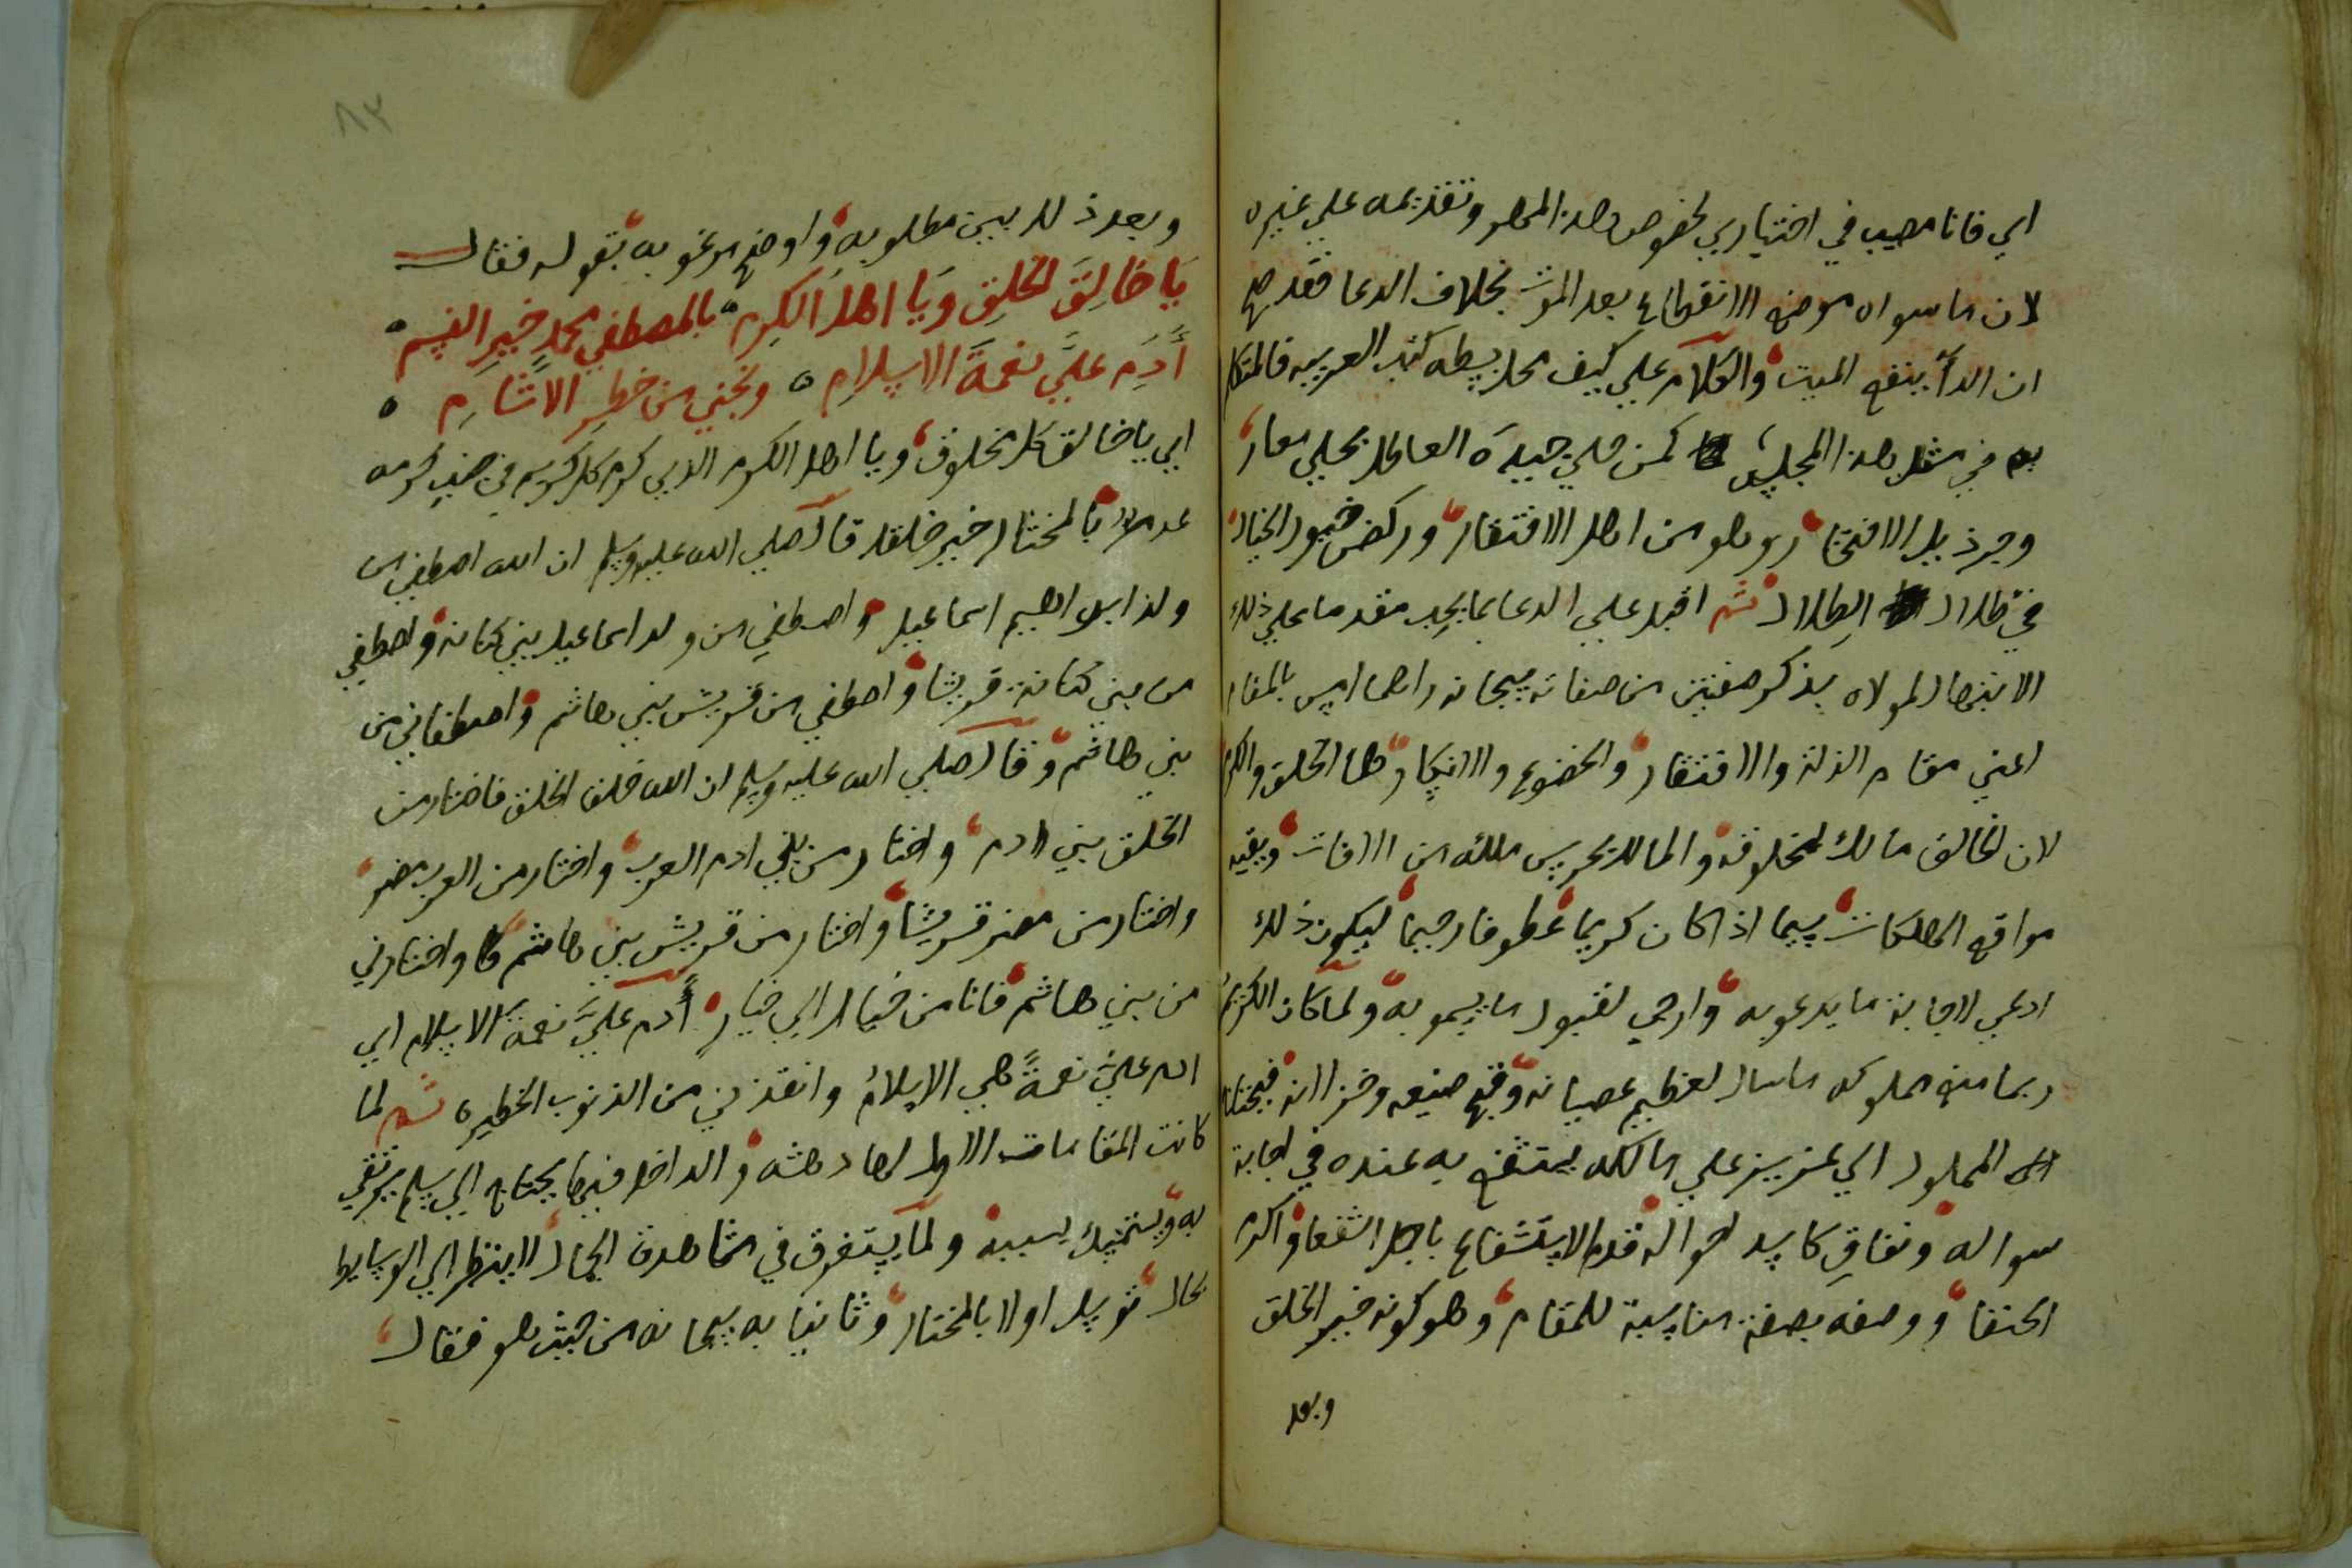 اي فانا مصيب في اختياري لخصوص هذا المحل وتقديمه علي غيره
لان ما سواه موضع الانقطاع بعد الموت بخلاف الدعا فقد صح
ان الدعا ينفع الميت والكلام علي كيف محل بسطه كتب العربيه فالمتكلم
به في مثل هذا المجلس كمن حلي جيده العاطل بحلي معار
وجر ذيل الافتخار وهو من اهل الافتقار وركض خيول الخيال
في ظلال الطلال ثم اقبل علي الدعا بما يجب مقدما علي ذلك
الابتهال لمولاه بذكر صفتين من صفاته سبحانه راهما امس بالمقام
اعني مقام الذلة والافتقار والخضوع والانكسار هما الخلق والكرم
لان الخالق مالك لمخلوقه والمالك يحرس ملكه من الافات ويقيه
مواقع الهلكات سيما اذا كان كريما عطوفا رحيما ليكون ذلك
ادعي لاجابة ما يدعو به وارجي لقبول ما يسمو به ولما كان الكريم
ربما منع مملوكه ما سال لعظيم عصيانه وقبح صنيعه وخز فيحتاج
المملوك الي عزيز علي مالكه يستشفع به عنده في اجابة
سواله ونفاق كاسد احواله قدم الاستشفاع باجل الشفعا واكرم
الحنفا ووصفه بصفة مناسبة للمقام وهو كونه خير الخلق
وبعد
وبعد ذلك بين مطلوبه واوضح مرغوبه بقوله فقال
يَا خَالِقَ الخَلقِ وَيَا اهلَ الكرم بالمصطفي محمد خير النسم
أَدِم عليَّ نعمةَ الاسلام ونجني من خطر الآثام
اي يا خالق كل مخلوق ويا اهل الكرم الذي كرم كل كريم في جنب كرمه
عدم بالمختار خير خلقك قال صلي الله عليه وسلم ان الله اصطفي من
ولد ابراهيم اسماعيل واصطفي من ولد اسماعيل بني كنانه واصطفي
من بني كنانة قريشا واصطفي من قريش بني هاشم واصطفاني من
بني هاشم وقال صلي الله عليه وسلم ان الله خلق الخلق فاختار من
الخلق بني ادم واختار من بني ادم العرب واختار من العرب مضر
واختار من مضر قريشا واختار من قريش بني هاشم واختارني
من بني هاشم فانا من خيار الي خيار أدم عليَّ نعمة الاسلام اي
ادم عليَّ نعمةً هي الاسلامُ وانقذني من الذنوب الخطيره ثم لما
كانت المقامات الاول لها دهشه والداخل فيها يحتاج الي سلم يرتقي
به ويستمسك بسببه ولما يستغرق في مشاهدة الجمال لا ينظر الي الوسايط
بحال توسل اولا بالمختار وثانيا به سبحانه من حيث هو فقال